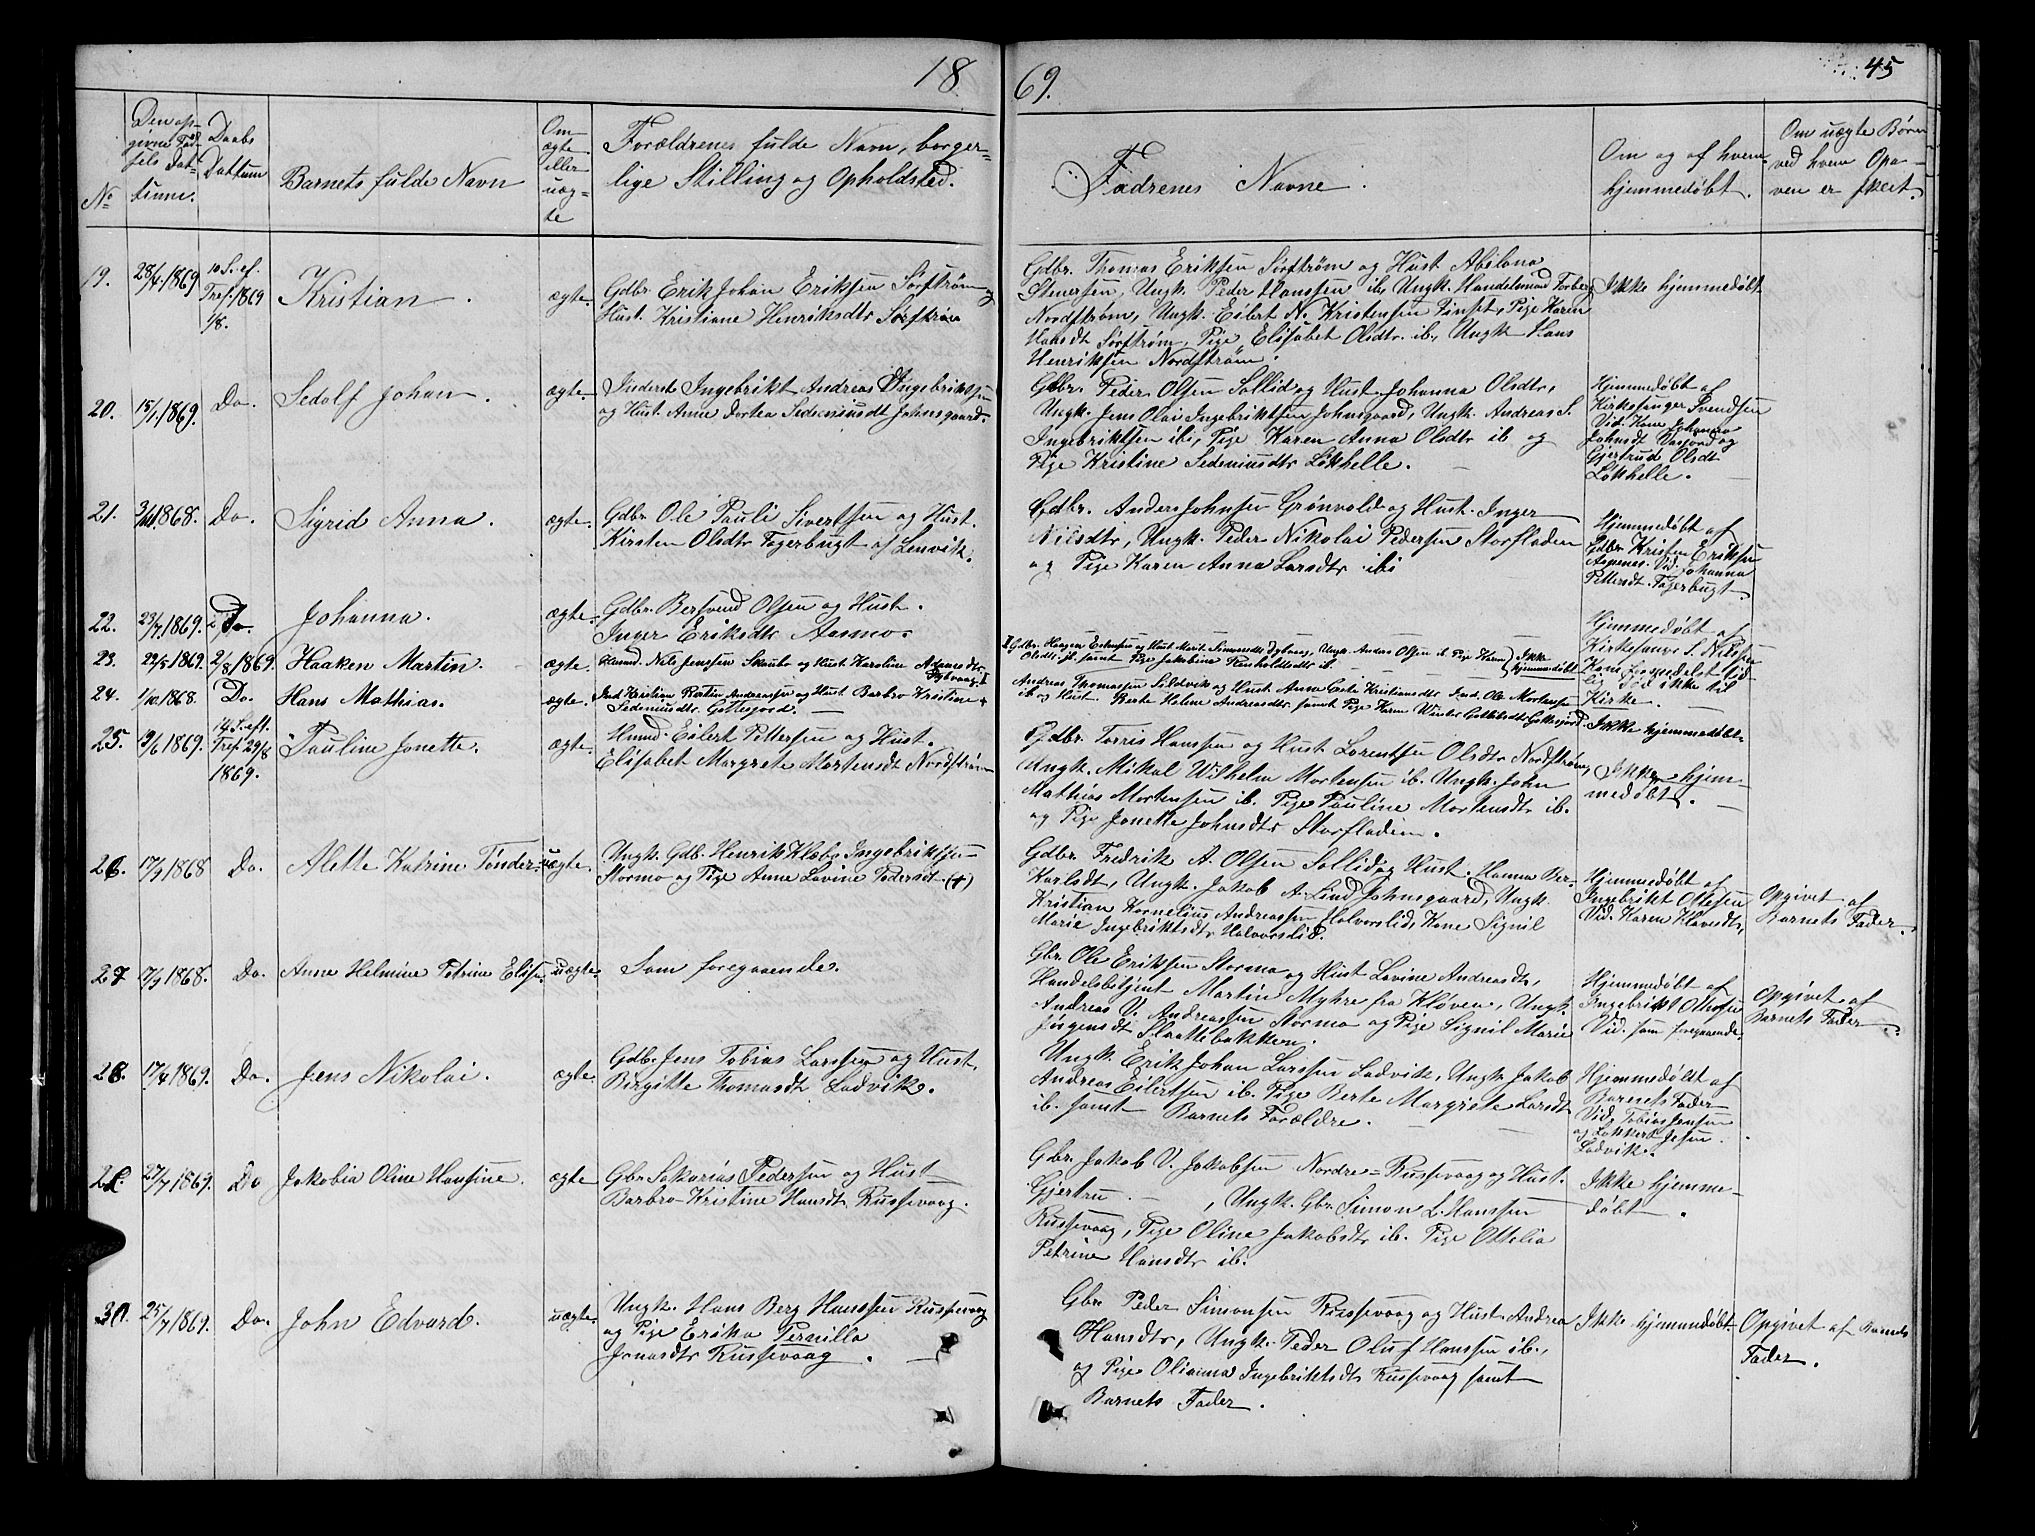 18 69. 45
No
Den opgivne Fødsels Dattum.
Daabs Dattum
Barnets fulde Navn
Om ægte eller uægte
Forældrenes fulde Navn, borgerlige Stilling og Opholdsted.
Fadrenes Navne.
Om og af hvem hjemmedøbt.
Om uægte Børn ved hvem Opgaven er skeet.
19. 28/4 1869 10 S. ef. Tref. 1869 1/8. Kristian. ægte.
Gdbr. Erik Johan Eriksen Sørstrøm og
Hust. Kristiane Henriksdtr Sørstrøm
Gdbr. Thomas Eriksen Sørstrøm og Hust Abelona
Stenersen, Ungk. Peder Hanssen ib, Ungk. Handelsmand Torberg
Nordstrøm, Ungk. Eilert N. Kristensen Finset, Pige Karen
Hansdt Sørstrøm, Pige Elisabet Olsdtr. ib., Ungk Hans
Henriksen Nordstrøm.
Ikke hjemmedøbt
20. 15/1 1869. Do. Sedolf Johan. ægte.
Inderst Ingebrikt Andreas Ingebriktsen
og Hust. Anne Dortea Sedeniusdt Johnsgaard.
Gdbr. Peder Olsen Sollid og Hust. Johanna Olsdtr,
Ungk. Jens Olai Ingebriktsen Johnsgaard, Ungk. Andreas S.
Ingebriktsen ib., Pige Karen Anna Olsdtr ib og
Pige Kristine Sedeniusdtr Løkhelle.
Hjemmedøbt af
Kirkesanger Svendsen
Vid. Kone Johanna
Johnsdt Vasjord og
Gjertrud Olsdt
Løkhelle.
21. 1868. Do. Sigrid Anna. ægte.
Gdbr. Ole Pauli Sivertsen og Hust.
Kirsten Olsdtr Fagerbugt af Lenvik.
Gdbr. Anders Johnsen Grønvold og Hust. Inger
Nilsdtr, Ungk. Peder Nikolai Pedersen Storfladen
og Pige Karen Anna Larsdtr ib.
Hjemmedøbt af
Gdbr. Kristen Eriksen
Aspenes. Vid. Johanna
Pettersdt. Fagerbugt.
22. 23/7 1869. Do. Johanna. ægte.
Gdbr. Bersvend Olsen og Hust.
Inger Eriksdtr Aasmo.
Hjemmedøbt af
Kirkesanger S. Nilssen
Kirke.
23. 22/5 1869. 2/8 1869. Haaken Martin. ægte.
Husmd. Nils Jenssen Skaubo og Hust Karoline
Gdbr. Haagen Eriksen og Hust Marit Simonsdt Dybvaag, Ungk. Anders Olsen ib Pige Karen
Olsdtr ib samt Pige Jakobine ib
Ikke hjemmedøbt
24. 1/10 1868. Do. Hans Mathias. ægte.
Ind Kristian Andreassen og Hust Barbro Kristine
Sedeniusdt. Gottesjord.
Andreas Thomassen Sildvik og Hust. Anne Kristiansdtr Ind. Ole Mortensen
ib og Hust. Berte Helene Andreasdtr samt Pige Karen
Ikke hjemmedøbt.
25. 19/6 1869. 14 S. eft. Tref. 29/8 1869. Pauline Jonette. ægte.
Husmd. Eilert Pettersen og Hust.
Elisabet Margrete Mortensdt Nordstrøm
Gdbr. Torris Hanssen og Hust Lorentsen Olsdtr Nordstrøm,
Ungk. Mikal Wilhelm Mortensen ib. Ungk. John
Mathias Mortensen ib. Pige Pauline Mortensdt ib.
og Pige Jonette Johnsdtr Storfladen.
Ikke hjemmedøbt.
26. 17/9 1868 Do. Alette Katrine Tønder. uægte.
Ungk. Gdb. Henrik Klæbo Ingebriktsen
Stormo og Pige Anne Lovine Pedersdt. (+)
Gdbr. Fredrik A. Olsen Sollid og Hust. Hanna Ber-
Karlsdt, Ungk. Jakob A. Lind Johnsgaard, Ungk.
Kristian Kornelius Andreassen Halvorslid, Kone Signil
Marie Ingebriktsdtr Halvorslid.
Hjemmedøbt af
Ingebrikt Ottesen
Vid. Karen Klavesdtr,
Opgivet af
Barnets Fader.
27. 17/9 1868. Do. Anne Helmine Petrine Elise. uægte.
Som foregaaende.
Gbr. Ole Eriksen Stormo og Hust Lovine Andreasdtr,
Handelsbetjent Martin Myhre fra Kløven, Ungk.
Andreas V. Andreassen Stormo og Pige Signil Marie
Jørgensdt Slaattebakken.
Hjemmedøbt af
Ingebrikt Ottesen
Vid. som foregaaende.
Opgivet af
Barnets Fader.
28. 17/4 1869. Do. Jens Nikolai. ægte.
Gdb. Jens Tobias Larssen og Hust.
Birgitte Thomasdt Lodvik.
Ungk. Erik Johan Larssen Lodvik, Ungk. Jakob
Andreas Eilertsen ib. Pige Berte Margrete Larsdt
ib. samt Barnets Forældre.
Hjemmedøbt af
Barnets Fader
Vid. Tobias Jensen
og Lokkert Jesen.
Lodvik.
29. 27/7 1869. Do Jakobia Oline Hansine. ægte
Gbr Sakarias Pedersen og Hust
Barbro Kristine Hansdtr Russevaag.
Gbr. Jakob V. Jakobsen Nordre-Russevaag og Hust.
Gjertru , Ungk. Gbr. Simon L. Hanssen
Russevaag, Pige Oline Jakobsdtr ib. Pige Ottelia
Petrine Hansdtr ib.
Ikke hjemme-
døbt.
30. 25/7 1869. Do. John Edvard. uægte.
Ungk. Hans Berg Hanssen Russevaag
og Pige Erika Pernilla
Jonasdtr Russevaag.
Gbr Peder Simonsen Russevaag og Hust. Andrea
Hansdtr, Ungk. Peder Oluf Hanssen ib.,
og Pige Olianna Ingebriktsdtr Russevaag samt
Barnets Fader.
Ikke hjemmedøbt.
Opgivet af Barnets
Fader.